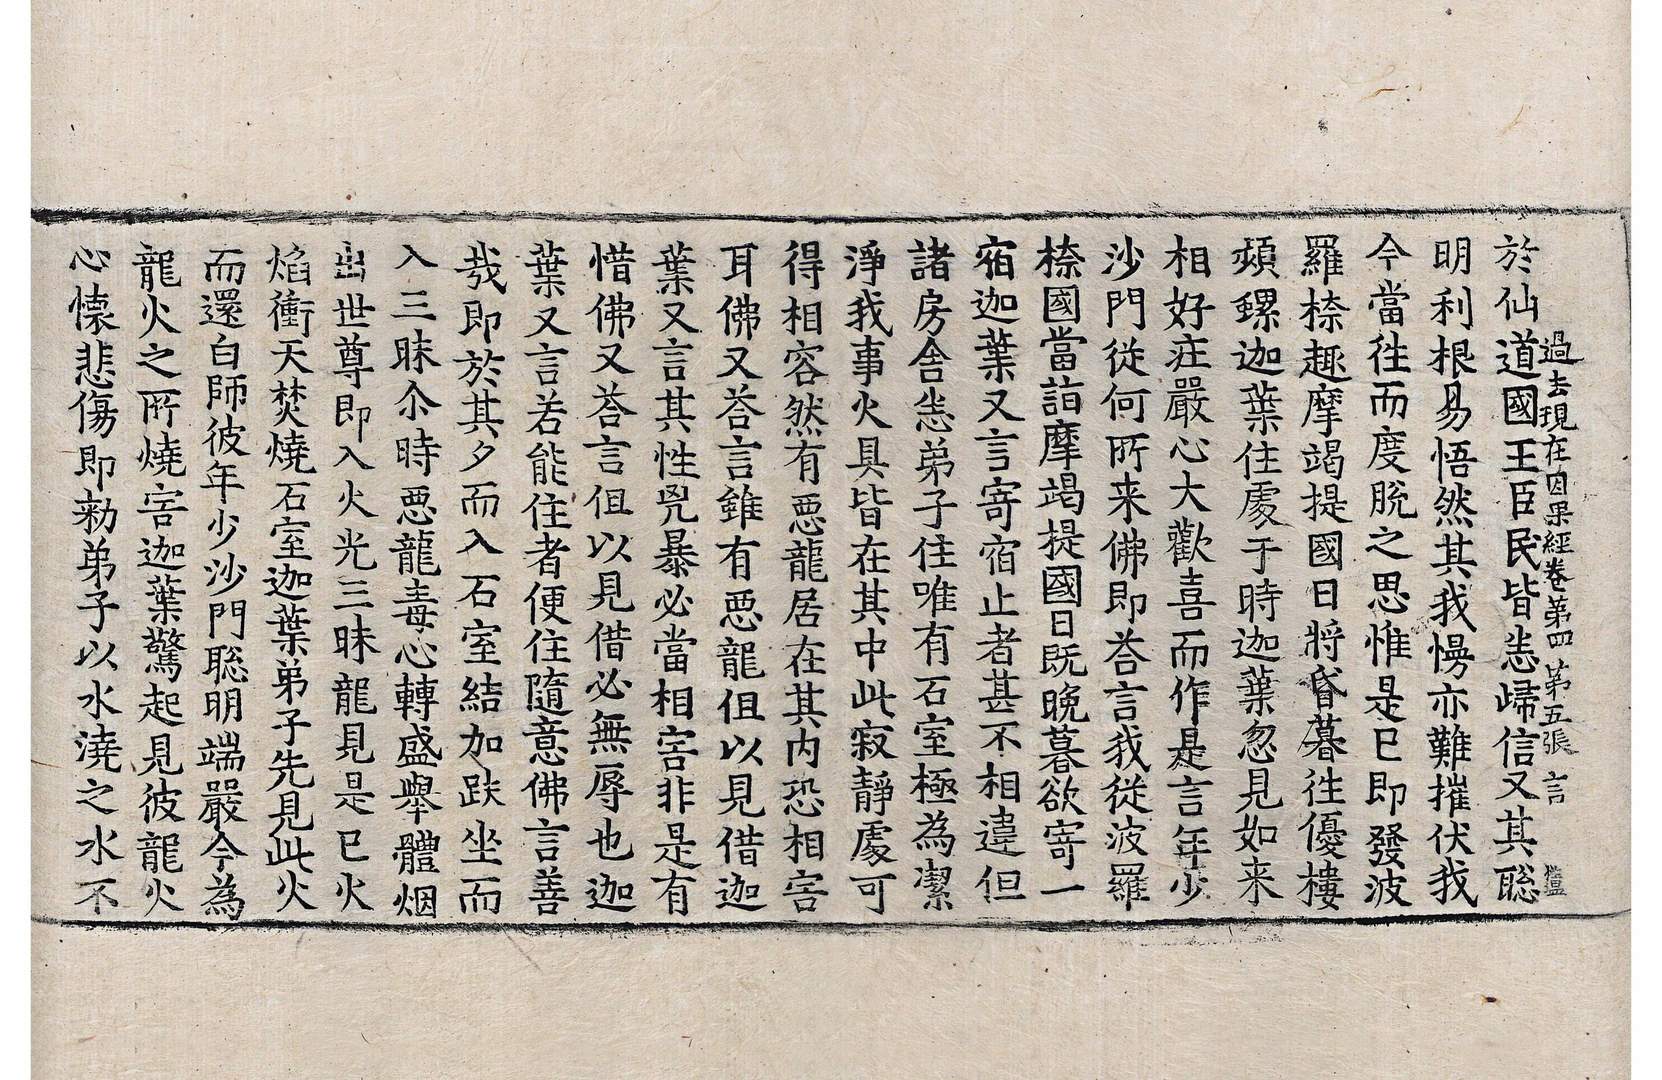 過去現在因果經卷第四 第五張 言
於仙道國王臣民皆悉歸信又其聡
明利根易悟然其我慢亦難摧伏我
今當徃而度脫之思惟是已即發波
羅㮈趣摩竭提國日將昏暮徃優樓
頻螺迦葉住處于時迦葉忽見如来
相好庄嚴心大歡喜而作是言年少
沙門従何所来佛即荅言我従波羅
㮈國當詣摩竭提國日既晩暮欲寄一
宿迦葉又言寄宿止者甚不相違但
諸房舍悉弟子住唯有石室極為潔
淨我事火具皆在其中此寂靜處可
得相容然有惡龍居在其内恐相害
耳佛又荅言雖有惡龍但以見借迦
葉又言其性兇暴必當相害非是有
惜佛又荅言但以見借必無辱也迦
葉又言若能住者便住隨意佛言善
㦲即於其夕而入石室結加趺坐而
入三昧尒時惡龍毒心轉盛舉體烟
出世尊即入火光三昧龍見是已火
焰衝天焚燒石室迦葉弟子先見此火
而還白師彼年少沙門聡明端嚴今為
龍火之所燒害迦葉驚起見彼龍火
心懐悲傷即勑弟子以水澆之水不